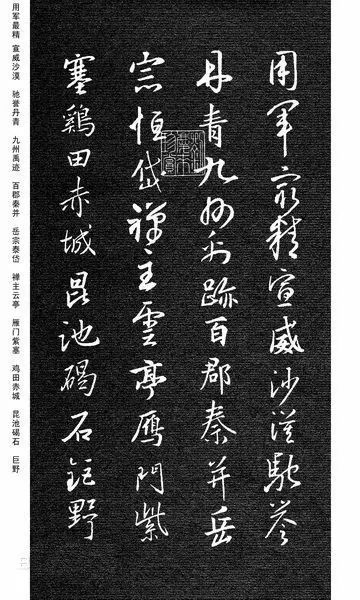 用軍最精宣威沙漠馳譽
丹青九州禹跡百郡秦并岳
宗恒岱禪主雲亭鴈門紫
塞鷄田赤城昆池碣石鉅野
用军最精 宣威沙漠 驰誉丹青 九州禹迹 百郡秦并 岳宗泰岱 禅主云亭 雁门紫塞 鸡田赤城 昆池碣石 巨野